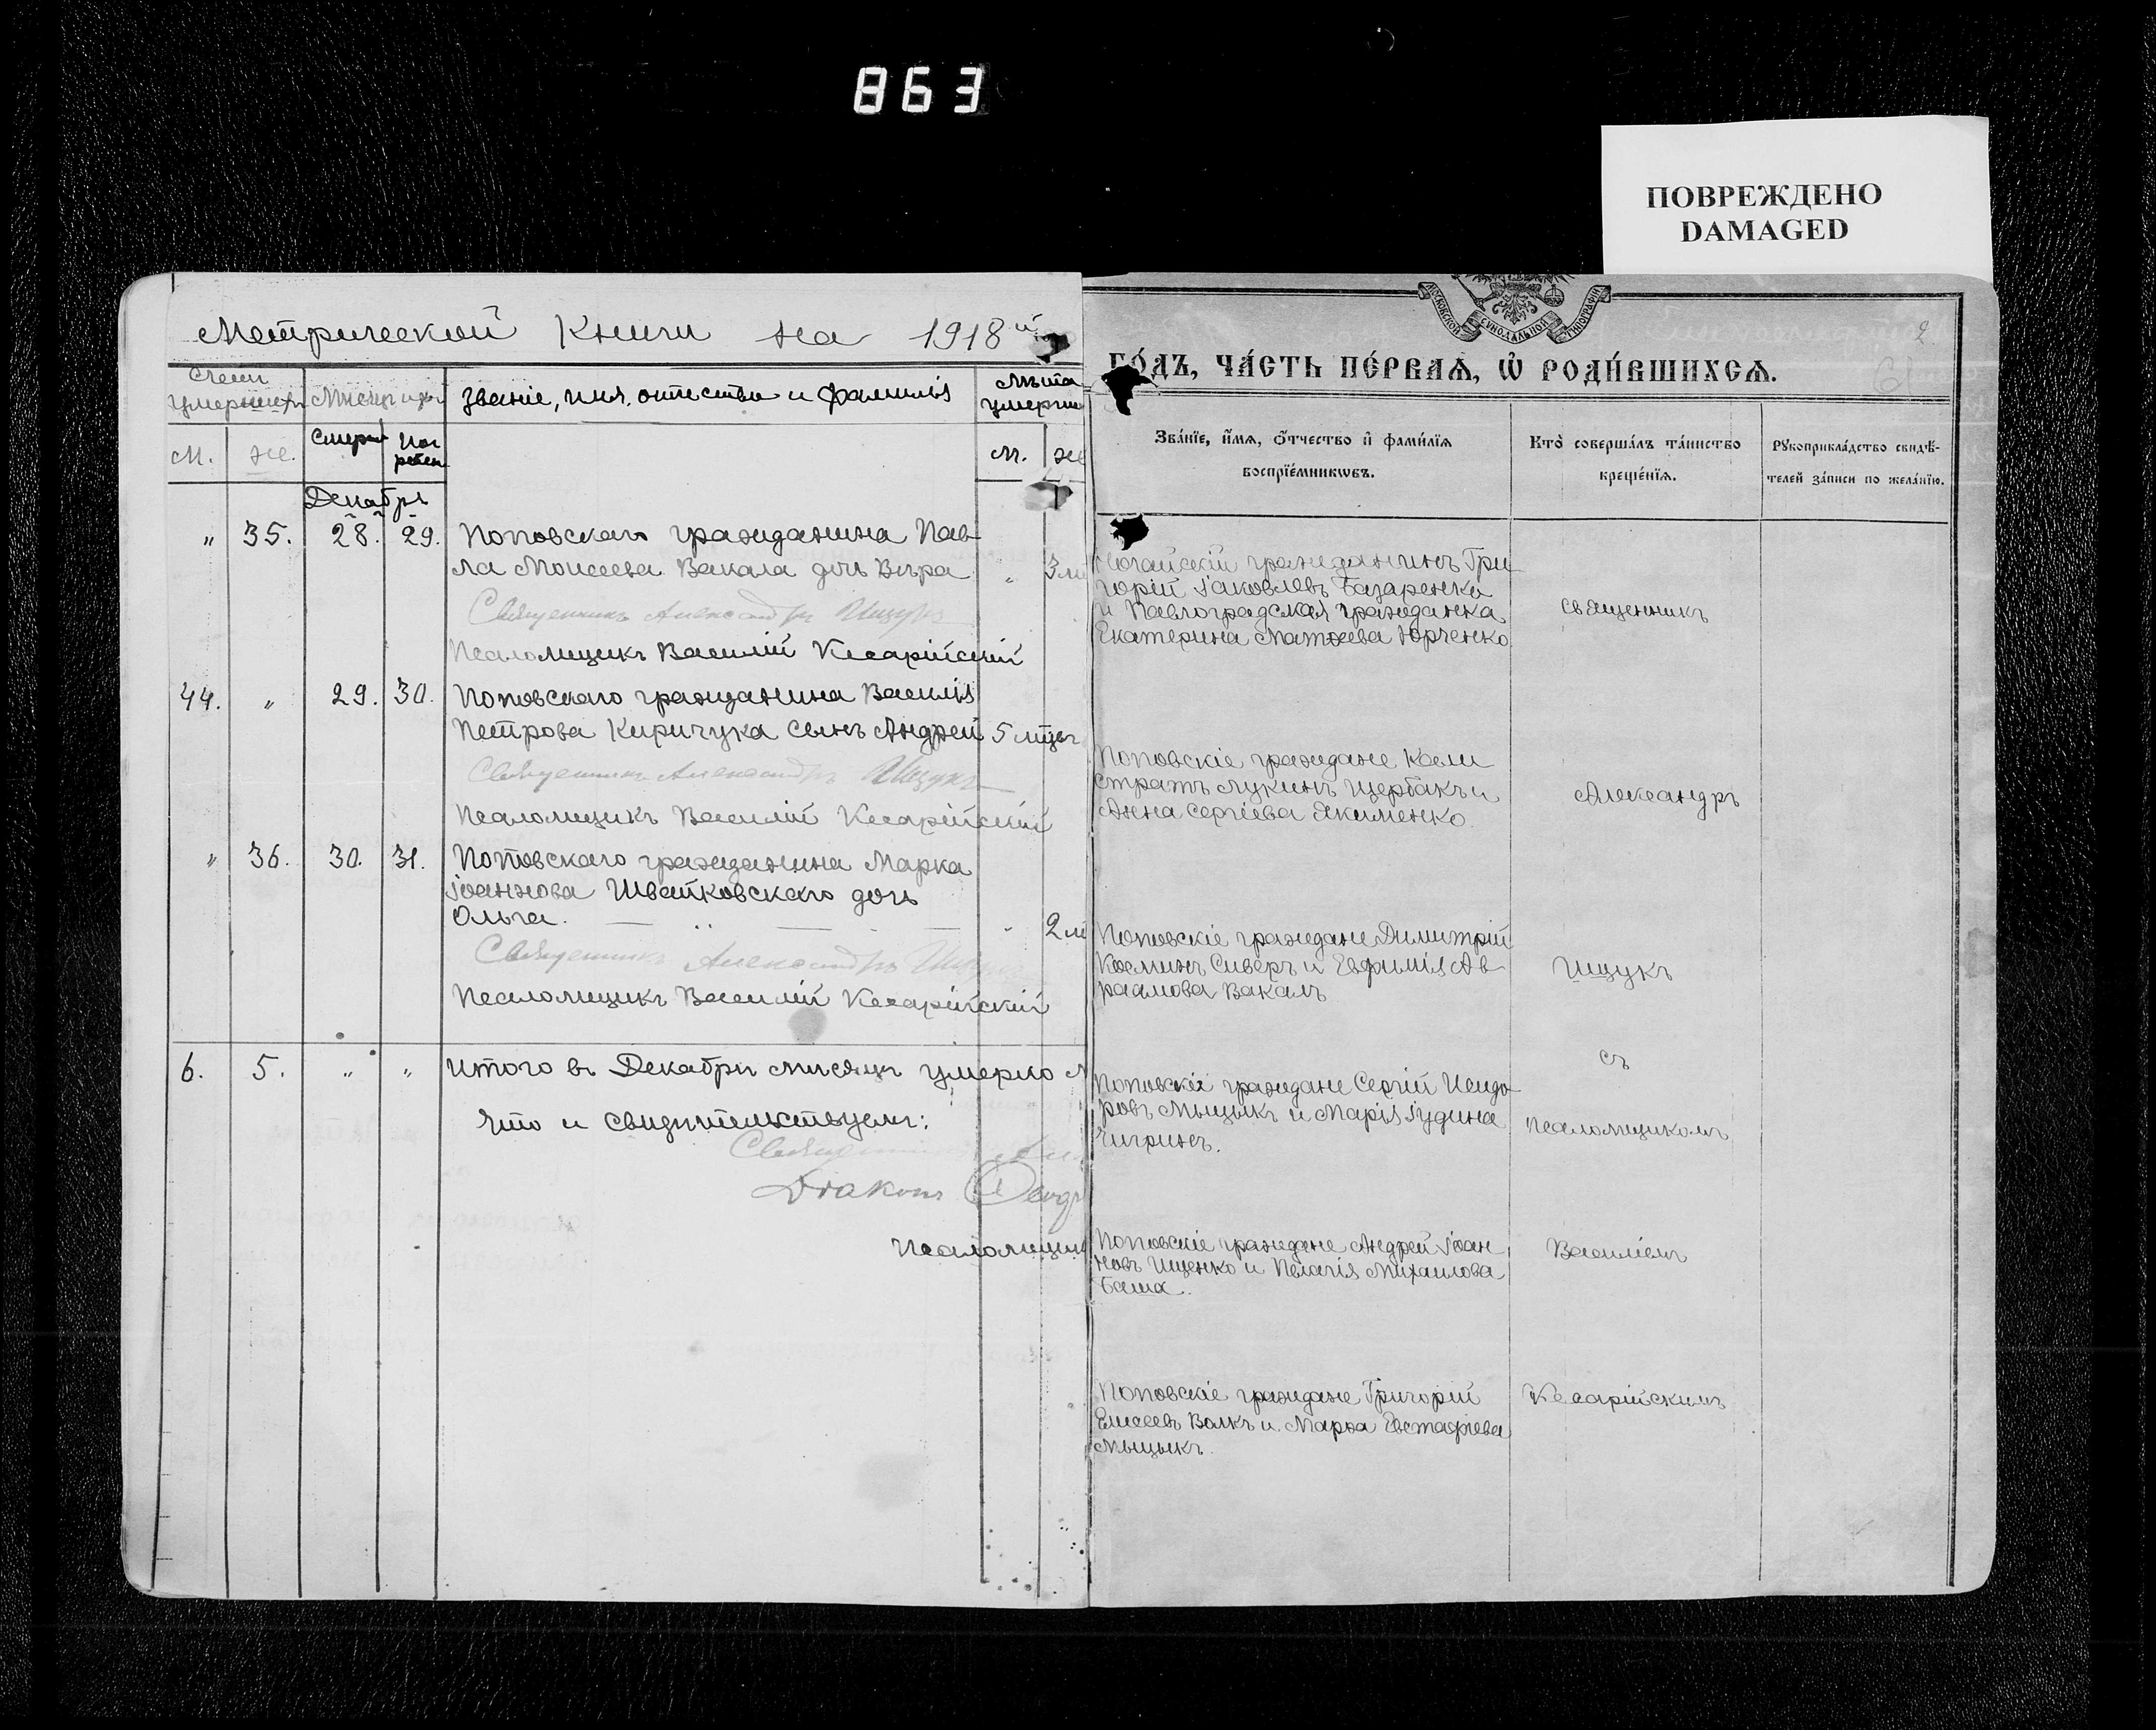 863
ПОВРЕЖДЕНО
DAMAGED
Метрической Книги на 1918й
Счетъ умершихъ
Мѣсяцъ и день
Званіе, имя, отчество и фамилія
Лѣта умерши
М.
Же.
Смерт
Погребен
М.
Же
Декабрь
" 35. 28. 29. Поповскаго гражданина Пав-
ла Моисеева Вакала дочь Вѣра " 3 м
Священникъ Александръ Ищукъ
Псаломщикъ Василій Кесарійскій
44. " 29. 30. Поповскаго гражданина Василія
Петрова Киричука сынъ Андрей 5 мцъ
Священникъ Александръ Ищукъ
Псаломщикъ Василій Кесарійскій
" 36. 30. 31. Поповскаго гражданина Марка
Іоаннова Швайковскаго дочь
Ольга. " 2 м
Священникъ Александръ Ищукъ
Псаломщикъ Василій Кесарійскій
6. 5. " " Итого въ Декабрѣ мѣсяцѣ умерло М
Что и свидѣтельствуемъ:
Священникъ
Діаконъ Ѳеод
Псаломщик
МОСКОВСКОЙ СѴНОДАЛЬНОЙ ТИПОГРАФІИ
2
го́дъ, ча́сть пе́рваѧ, ѡ҆ роди́вшихсѧ.
Зва́нїе, и҆́мѧ, ѻ҆́тчество и҆ фами́лїѧ
воспрїе́мникѡвъ.
Кто̀ соверша́лъ та́инство
креще́нїѧ.
Рꙋкоприкла́дство свидѣ́-
телей за́писи по жела́нїю.
Ногайскій гражданинъ Гри
горій Іаковлевъ Базаренко
и Павлоградская гражданка
Екатерина Матѳеева Юрченко
Священникъ
Поповскіе граждане Коли
стратъ Лукинъ Щербакъ и
Анна Сергіева Якименко.
Александръ
Поповскіе граждане Димитрій
Косминъ Сиверъ и Евфимія Ав
раамова Вакалъ
Ищукъ
съ
Поповскіе граждане Сергій Исидо
ровъ Мыцыкъ и Марія Іудина
Чигринъ.
псаломщикомъ
Поповскіе граждане Андрей Іоан
новъ Ищенко и Пелагія Михаилова
Баша.
Василіемъ
Поповскіе граждане Григорій
Елисеевъ Волкъ и Марѳа Евстафіева
Мыцыкъ.
Кесарійскимъ